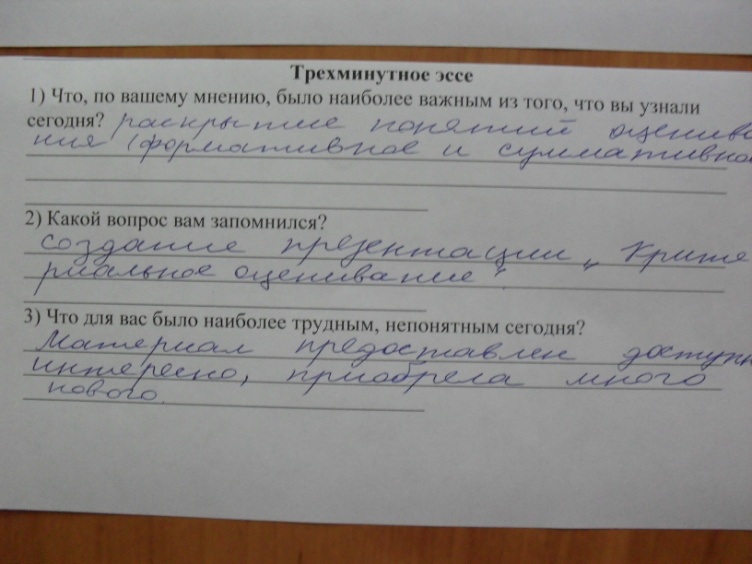 Трехминутное эссе
1) Что, по вашему мнению, было наиболее важным из того, что вы узнали
сегодня? раскрытие понятий оценива
ния (формативное и суммативное
2) Какой вопрос вам запомнился?
создание презентации „ Крите
риальное оценивание"
3) Что для вас было наиболее трудным, непонятным сегодня?
Материал предоставлен доступн
интересно, приобрела много
нового.